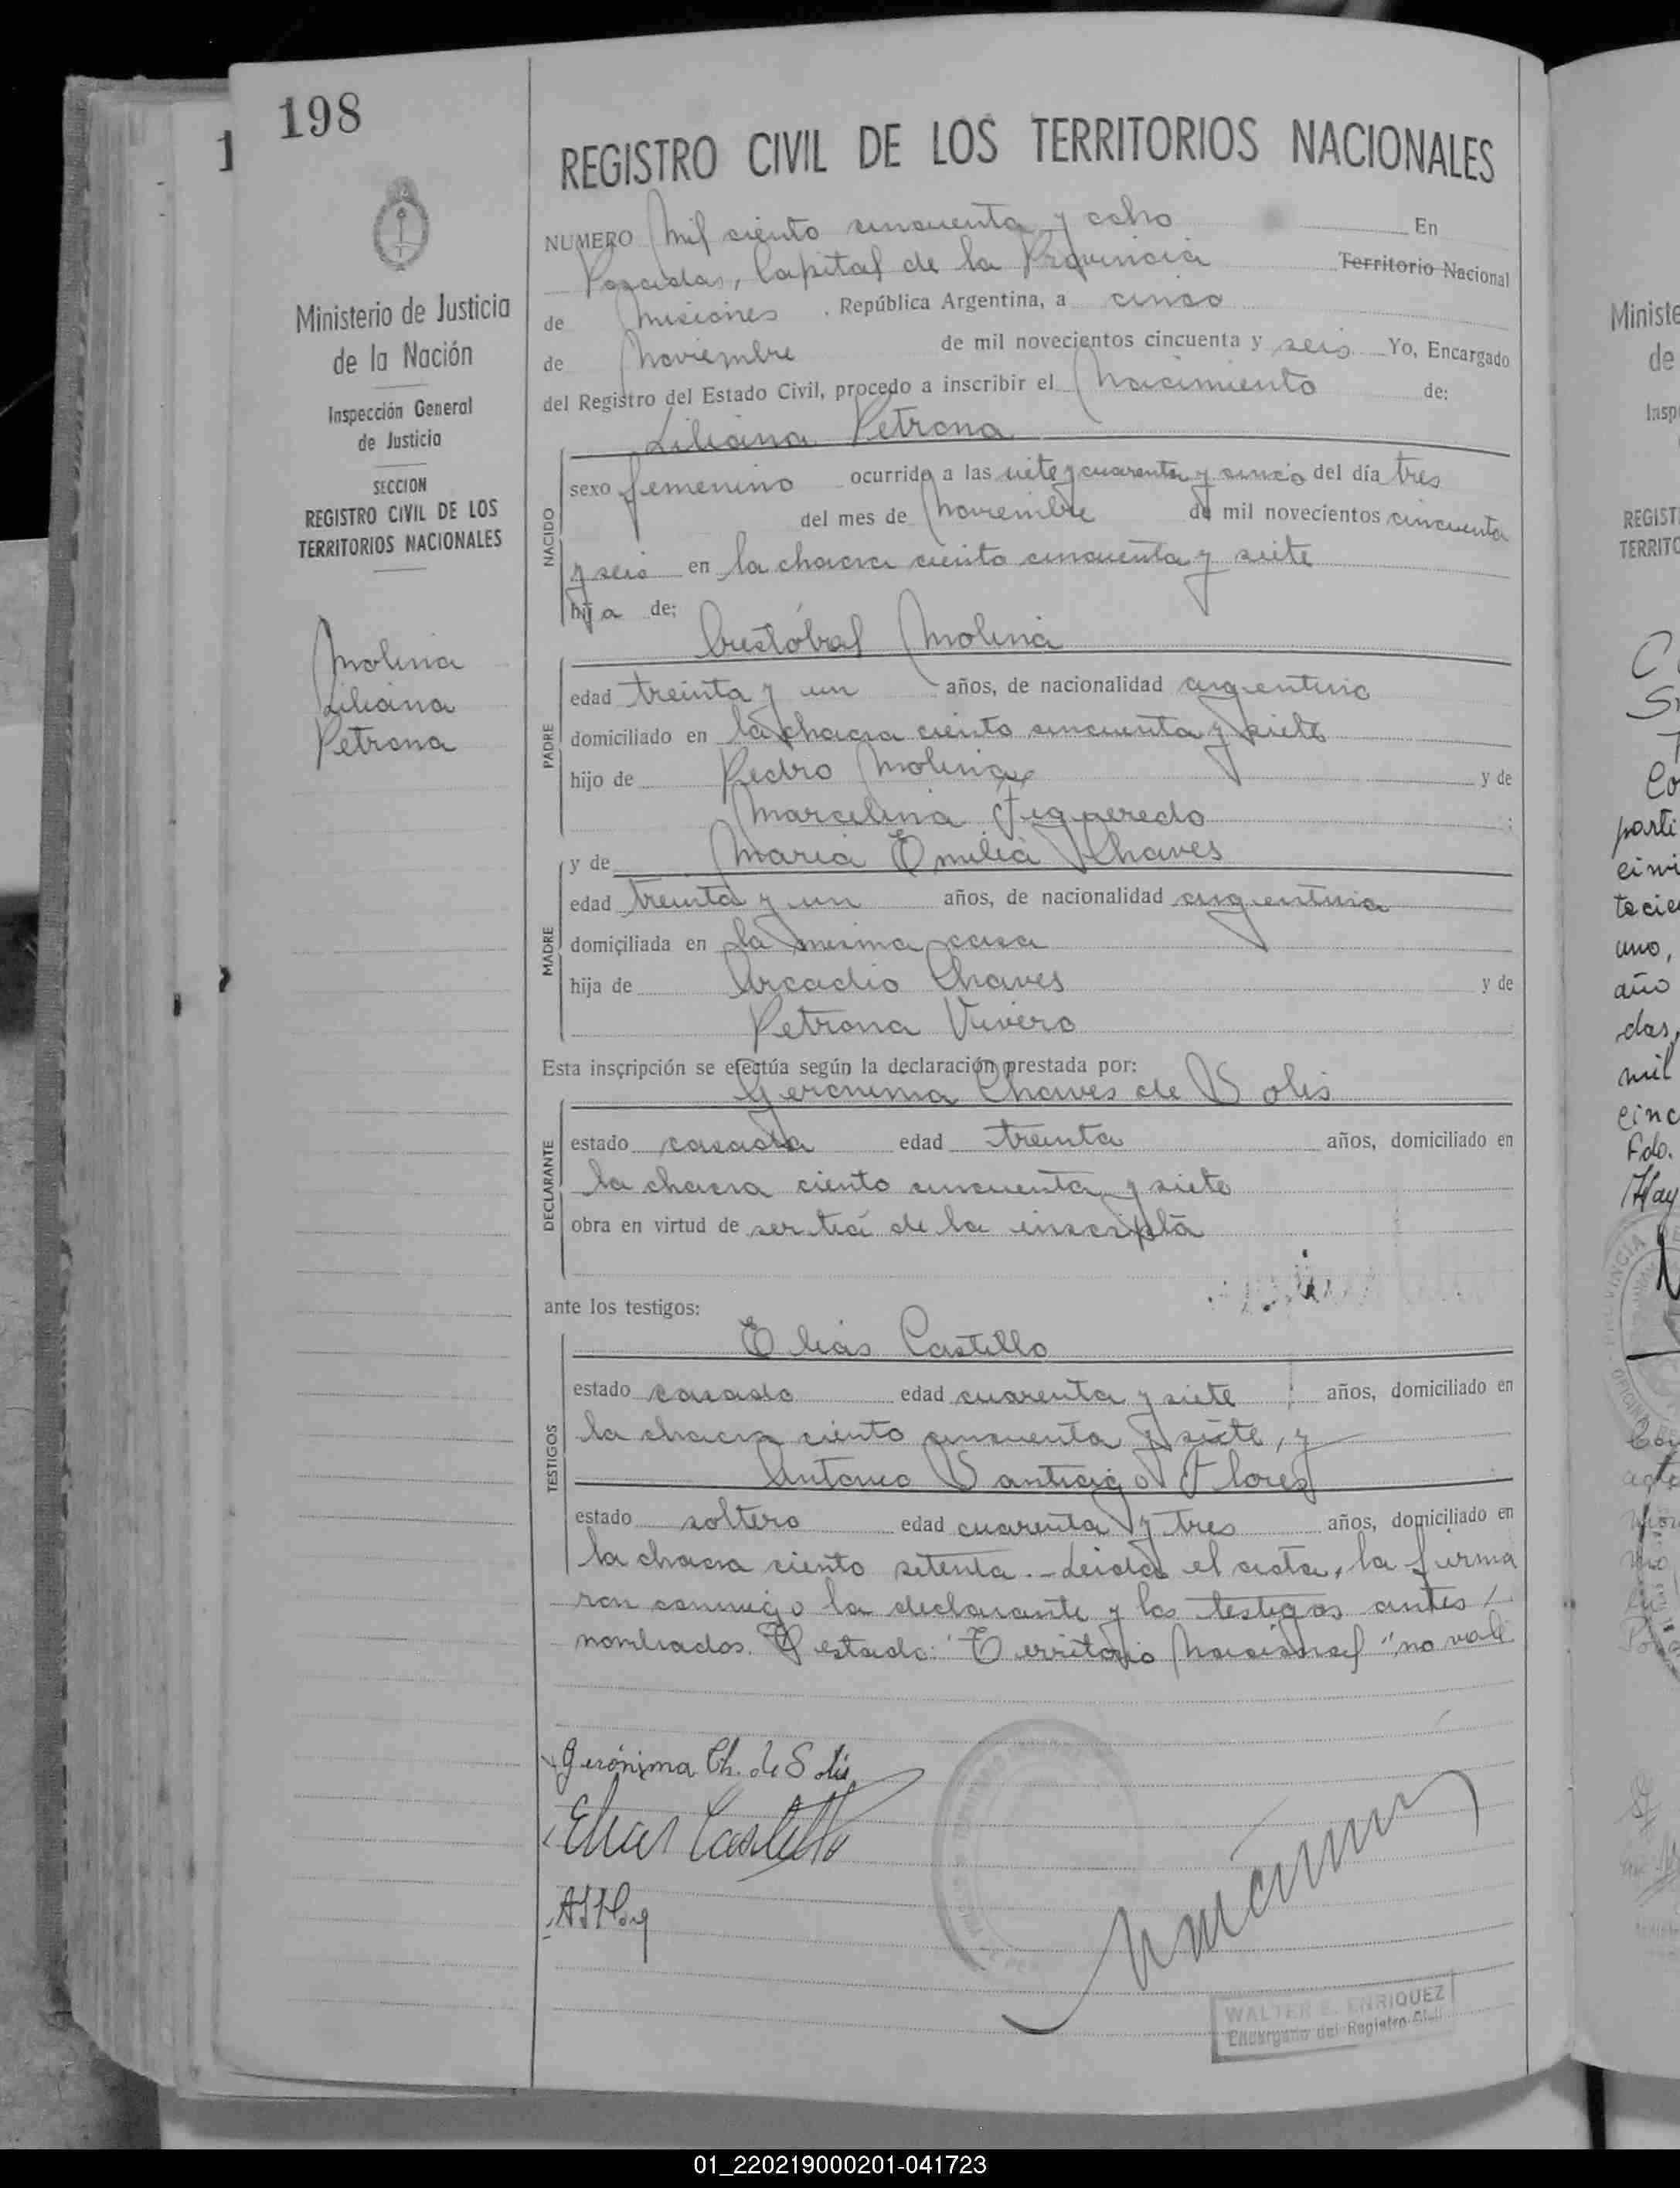 198
REGISTRO CIVIL DE LOS TERRITORIOS NACIONALES
Ministerio de Justicia
de la Nación
Inspección General
de Justicia
SECCION
REGISTRO CIVIL DE LOS
TERRITORIOS NACIONALES
Molina
Liliana
Petrona
NUMERO Mil ciento cincuenta y ocho En
Posadas, Capital de la Provincia Territorio Nacional
de Misiones, República Argentina, a cinco
de Noviembre de mil novecientos cincuenta y seis Yo, Encargado
del Registro del Estado Civil, procedo a inscribir el Nacimiento de:
Liliana Petrona
NACIDO
sexo femenino ocurrido a las siete y cuarenta y cinco del día tres
del mes de Noviembre de mil novecientos cincuenta
y seis en la chacra ciento cincuenta y siete
hija de:
Cristóbal Molina
PADRE
edad treinta y un años, de nacionalidad argentino
domiciliado en la chacra ciento cincuenta y siete
hijo de Pedro Molina y de
Marcelina Figueredo
MADRE
y de María Emilia Chaves
edad treinta y un años, de nacionalidad argentina
domiciliada en la misma casa
hija de Arcadio Chaves y de
Petrona Vivero
Esta inscripción se efectúa según la declaración prestada por:
Gerónima Chaves de Solis
DECLARANTE
estado casada edad treinta años, domiciliado en
la chacra ciento cincuenta y siete
obra en virtud de ser tía de la inscripta
ante los testigos:
Elías Castillo
TESTIGOS
estado casado edad cuarenta y siete años, domiciliado en
la chacra ciento cincuenta y siete, y
Antonio Santiago Flores
estado soltero edad cuarenta y tres años, domiciliado en
la chacra ciento setenta.- Leida el acta, la firma
ron conmigo la declarante y los testigos antes
nombrados. Testado: "Territorio Nacional" no vale
Gerónima Ch. de Solis
Elias Castillo
WALTER E. ENRIQUEZ
Encargado del Registro Civil
01_220219000201-041723